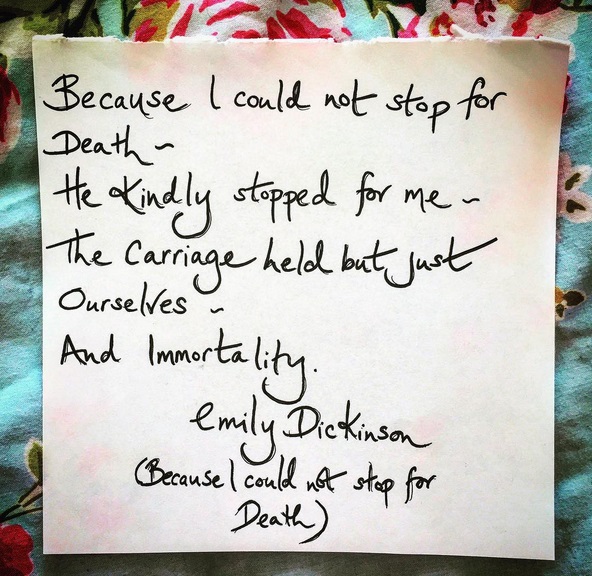 Because I could not stop for
Death ~
He kindly stopped for me ~
The Carriage held but just
Ourselves ~
And Immortality.
Emily Dickinson
(Because I could not stop for
Death)